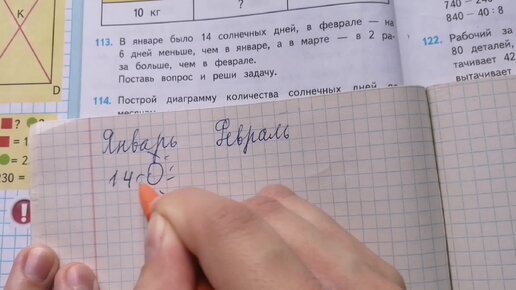 К
D
10 кг
?
113. В январе было 14 солнечных дней, в феврале — на
6 дней меньше, чем в январе, а в марте — в 2 ра-
за больше, чем в феврале.
Поставь вопрос и реши задачу.
114. Построй диаграмму количества солнечных дней
740 — 240
840 — 40 : 8
122. Рабочий за
80 деталей,
тачивает 42
вытачивает
?
= 1
= 2
230 =
!
Январь Февраль
14 с